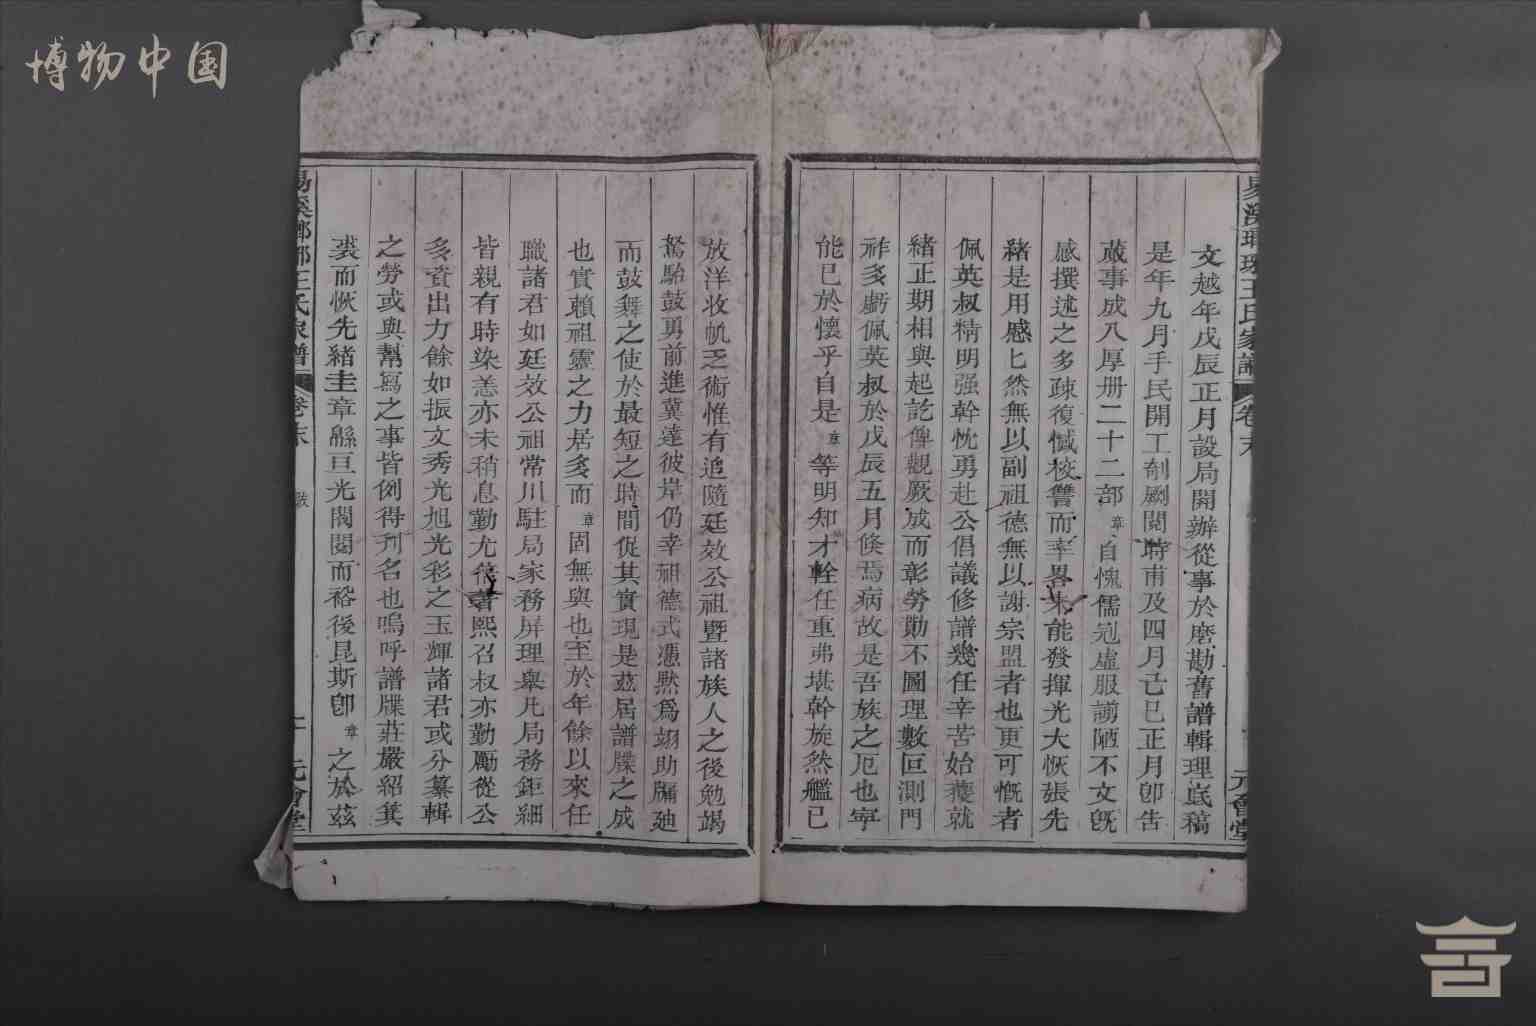 博物中国
易溪瑯琊王氏家譜 卷末
元會堂
文越年戊辰正月設局開辦從事於磨勘舊譜輯理底稿
是年九月手民開工剞劂閱時甫及四月己巳正月卽告
蕆事成八厚册二十二部章自愧儒冠虛服謭陋不文旣
感撰述之多疎復憾校讐而率畧未能發揮光大恢張先
緒是用感匕然無以副祖德無以謝宗盟者也更可慨者
佩英叔精明强幹忱勇赴公倡議修譜幾任辛苦始蘷就
緒正期相與起訖俾觀厥成而彰勞勩不圖理數叵測門
祚多虧佩英叔於戊辰五月倏焉病故是吾族之厄也寧
能已於懷乎自是章等明知才輇任重弗堪幹旋然艦已
放洋收帆乏術惟有追隨廷效公祖暨諸族人之後勉竭
駑駘鼓勇前進冀達彼岸仍幸祖德式憑默爲翊助牖廸
而鼓舞之使於最短之時間促其實現是玆届譜牒之成
也實賴祖靈之力居多而章固無與也至於年餘以來任
職諸君如廷效公祖常川駐局家務屏理舉凡局務鉅細
皆親有時染恙亦未稍息勤尤著熙召叔亦勤勵從公
多資出力餘如振文秀光旭光彩之玉輝諸君或分纂輯
之勞或與幫寫之事皆例得刋名也嗚呼譜牒莊嚴紹箕
裘而恢先緒圭章緜亘光閥閱而裕後昆斯卽章之於玆
易溪瑯琊王氏家譜 卷末 跋
元會堂